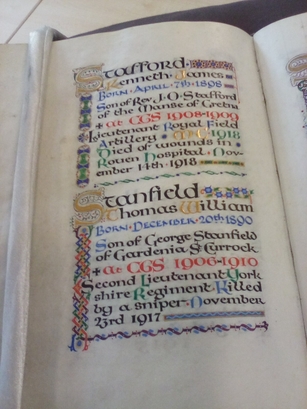 Stafford
Kenneth James
Born April 7th 1898
Son of Rev. J. O. Stafford
of the Manse of Gretna
+ At CGS 1908-1909
Lieutenant Royal Field
Artillery 1918
Died of wounds in
Rouen Hospital Nov
ember 14th 1918
Stanfield
Thomas William
Born December 20th 1890
Son of George Stanfield
of Gardenia St Currock
+ At CGS 1906-1910
Second Lieutenant York
shire Regiment Killed
by a sniper November
23rd 1917